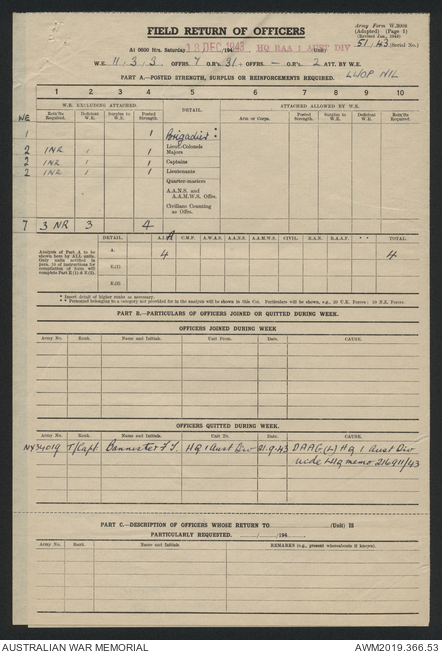 Army Form W.3008
(Adapted) (Page 1)
(Revised Jan., 1943)
FIELD RETURN OF OFFICERS
51/43 (Serial No.)
At 0600 Hrs. Saturday 18 DEC 1943 194 HQ RAA 1 AUST DIV (Unit)
W.E. 11/3/3 OFFRS. 7 O.R's. 31 + OFFRS. — O.R's. 2 ATT. BY W.E.
PART A.—POSTED STRENGTH, SURPLUS OR REINFORCEMENTS REQUIRED.
LWOP NIL
1 2 3 4 5 6 7 8 9 10
W.E. EXCLUDING ATTACHED. DETAIL. ATTACHED ALLOWED BY W.E.
WE Rein'fts Required. Deficient W.E. Surplus to W.E. Posted Strength. Arm or Corps. Posted Strength. Surplus to W.E. Deficient W.E. Rein'fts Required.
1 1 Brigadier *
Lieut-Colonels
2 1NR 1 1 Majors
2 1NR 1 1 Captains
2 1NR 1 1 Lieutenants
Quarter-masters
A.A.N.S. and A.A.M.W.S. Offrs.
Civilians Counting as Offrs.
7 3 NR 3 4
DETAIL. A.I.F. C.M.F. A.W.A.S. A.A.N.S. A.A.M.W.S. CIVIL. R.A.N. R.A.A.F. * * TOTAL.
Analysis of Part A to be shown here by ALL units. Only units notified in para. 16 of instructions for compilation of form will complete Part E(1) & E(2).
A. 4 4
E.(1)
E.(2)
* Insert detail of higher ranks as necessary.
** Personnel belonging to a category not provided for in the analysis will be shown in this Col. Particulars will be shown, e.g., 20 U.K. Forces; 10 N.Z. Forces.
PART B.—PARTICULARS OF OFFICERS JOINED OR QUITTED DURING WEEK.
OFFICERS JOINED DURING WEEK
Army No. Rank. Name and Initials. Unit From. Date. CAUSE.
OFFICERS QUITTED DURING WEEK.
Army No. Rank. Name and Initials. Unit To. Date. CAUSE.
NX34019 T/Capt. Bannister F J. HQ 1 Aust Div 21.9.43 DAAG (L) HQ 1 Aust Div
vide LHQ memo 216911/43
PART C.—DESCRIPTION OF OFFICERS WHOSE RETURN TO (Unit) IS
PARTICULARLY REQUESTED. / /194
Army No. Rank. Name and Initials. REMARKS (e.g., present whereabouts if known).
AUSTRALIAN WAR MEMORIAL
AWM2019.366.53